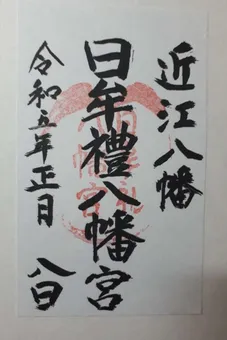 近江八幡
日牟禮八幡宮
令和五年正月 八日